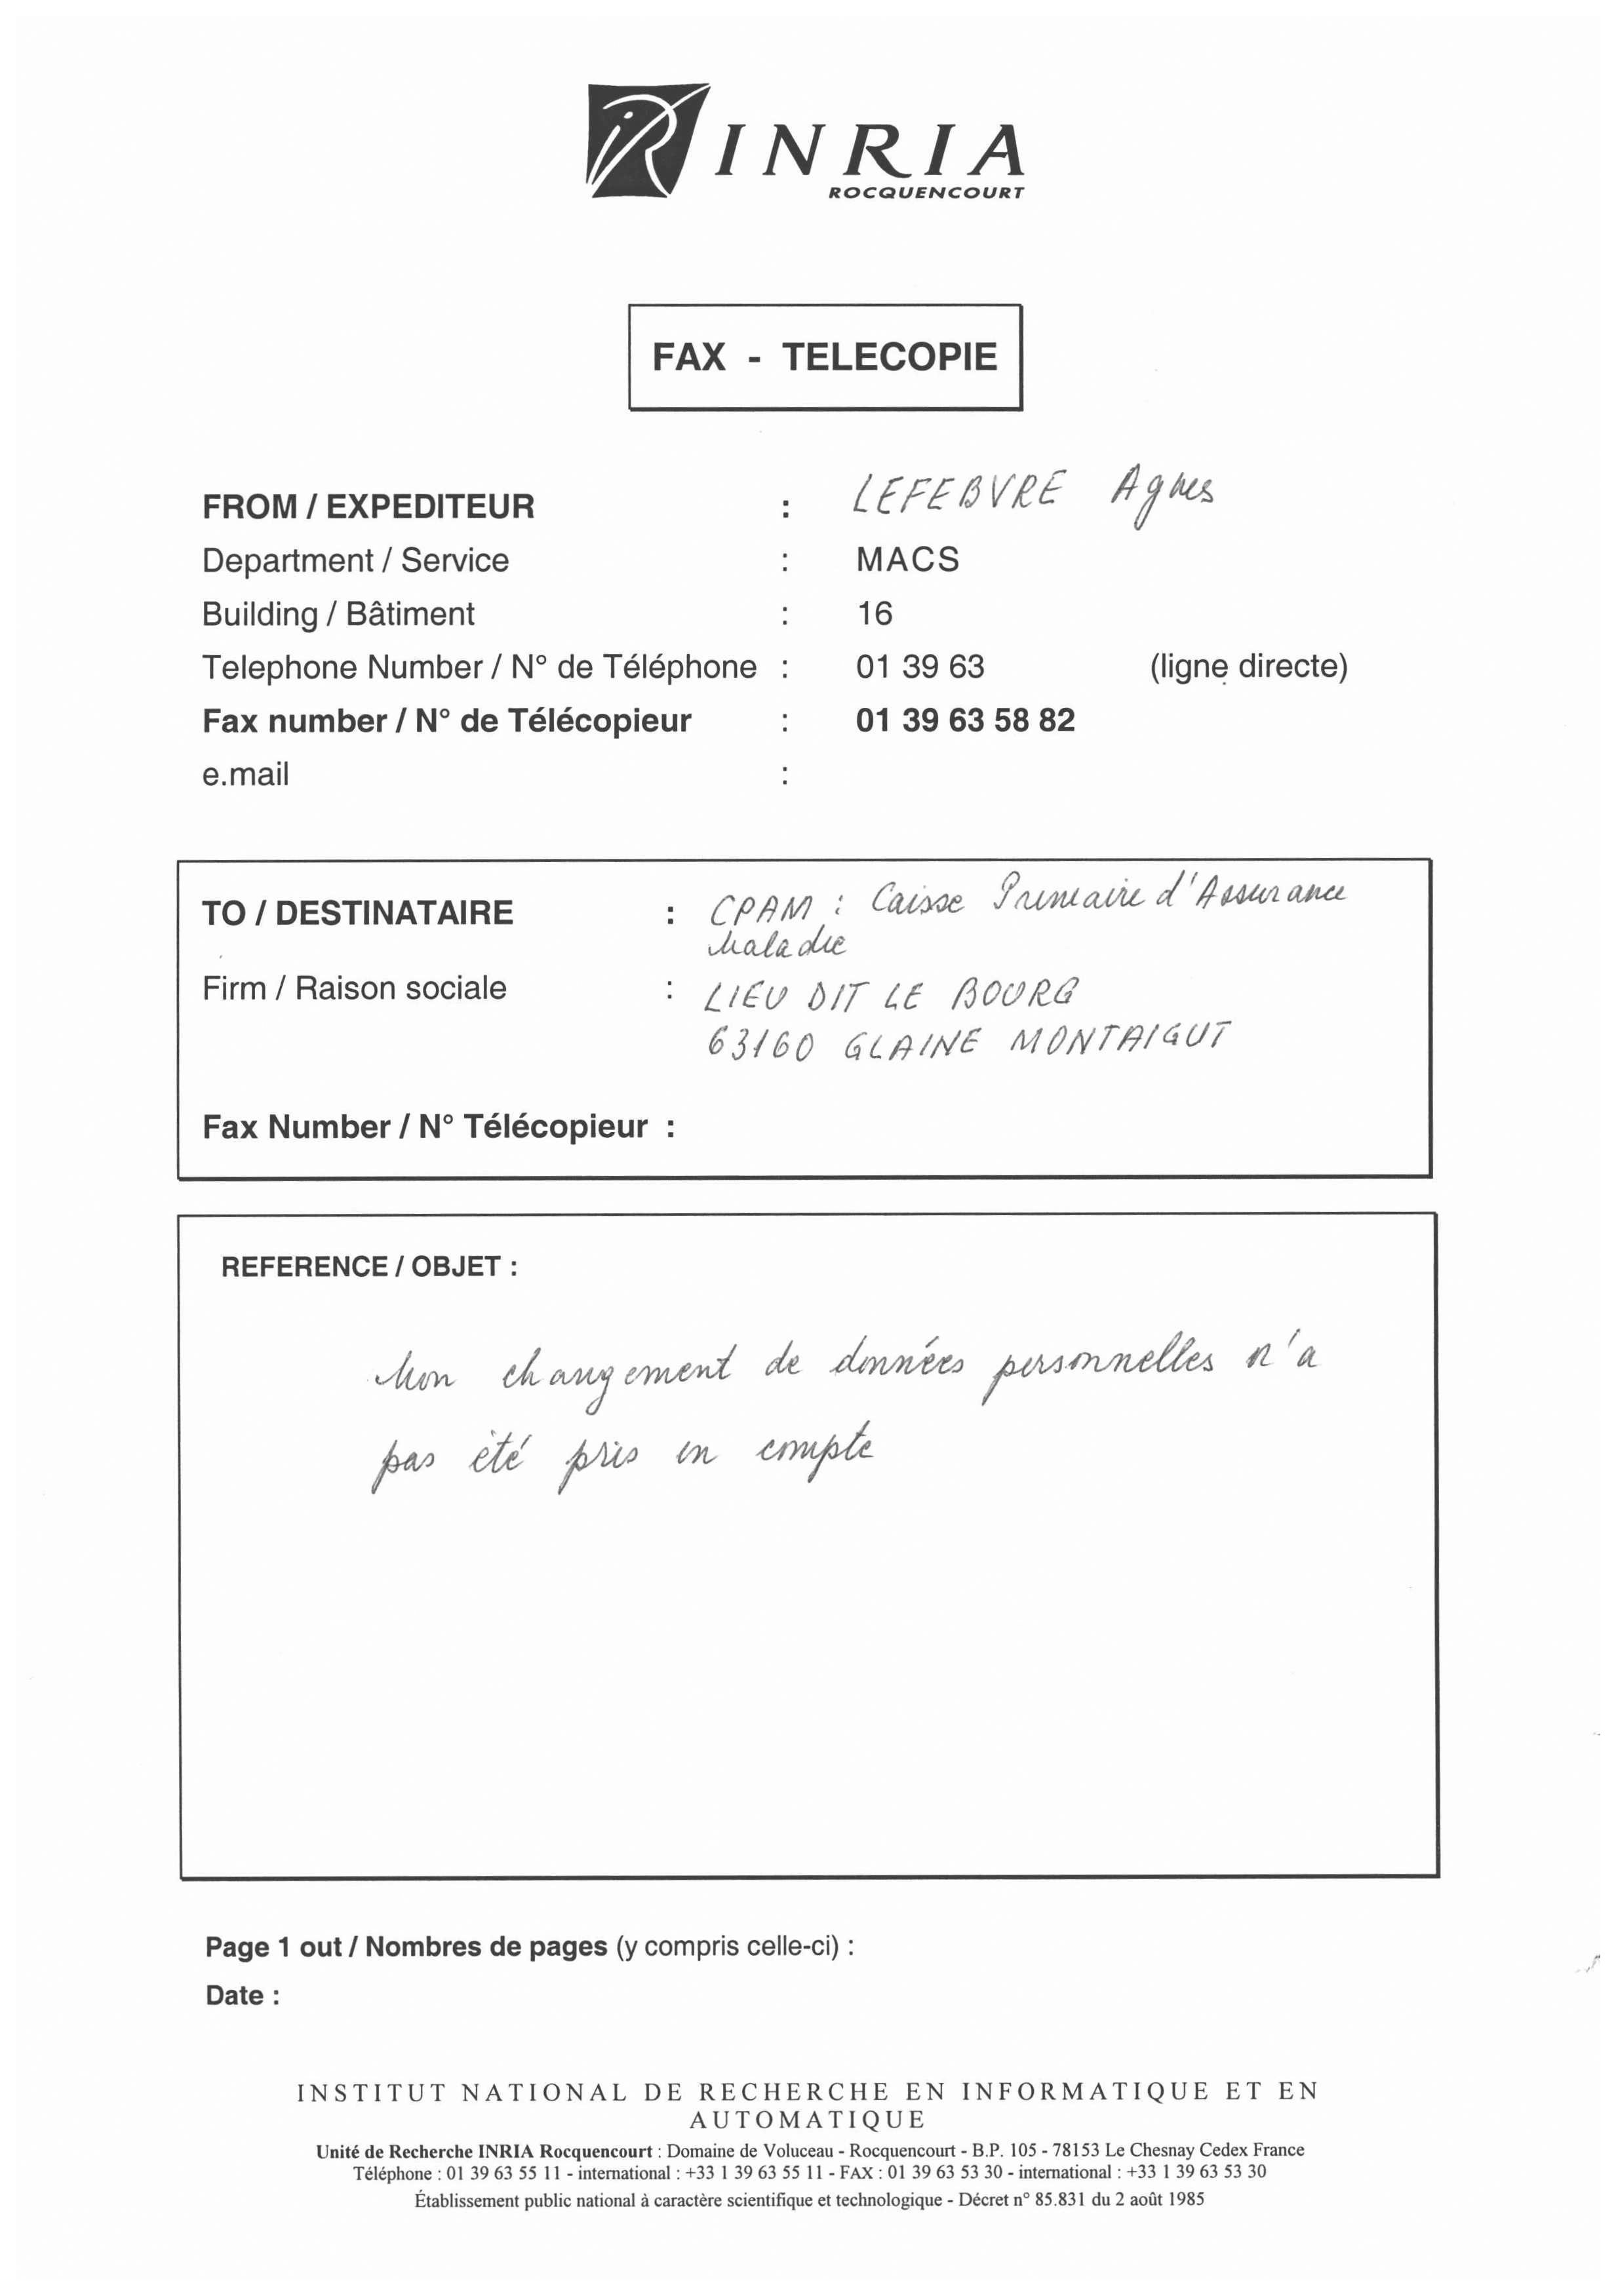 INRIA
ROCQUENCOURT
FAX - TELECOPIE
FROM / EXPEDITEUR : LEFEBVRE Agnes
Department / Service : MACS
Building / Bâtiment : 16
Telephone Number / N° de Téléphone : 01 39 63 (ligne directe)
Fax number / N° de Télécopieur : 01 39 63 58 82
e.mail :
TO / DESTINATAIRE : CPAM : Caisse Primaire d'Assurance
Maladie
Firm / Raison sociale : LIEU DIT LE BOURG
63160 GLAINE MONTAIGUT
Fax Number / N° Télécopieur :
REFERENCE / OBJET :
Mon changement de données personnelles n'a
pas été pris en compte
Page 1 out / Nombres de pages (y compris celle-ci) :
Date :
INSTITUT NATIONAL DE RECHERCHE EN INFORMATIQUE ET EN
AUTOMATIQUE
Unité de Recherche INRIA Rocquencourt : Domaine de Voluceau - Rocquencourt - B.P. 105 - 78153 Le Chesnay Cedex France
Téléphone : 01 39 63 55 11 - international : +33 1 39 63 55 11 - FAX : 01 39 63 53 30 - international : +33 1 39 63 53 30
Établissement public national à caractère scientifique et technologique - Décret n° 85.831 du 2 août 1985